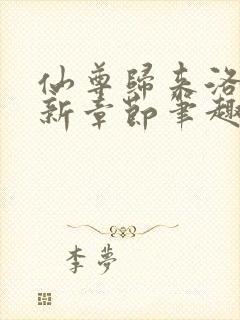 仙尊歸來洛
新章節筆趣
李夢